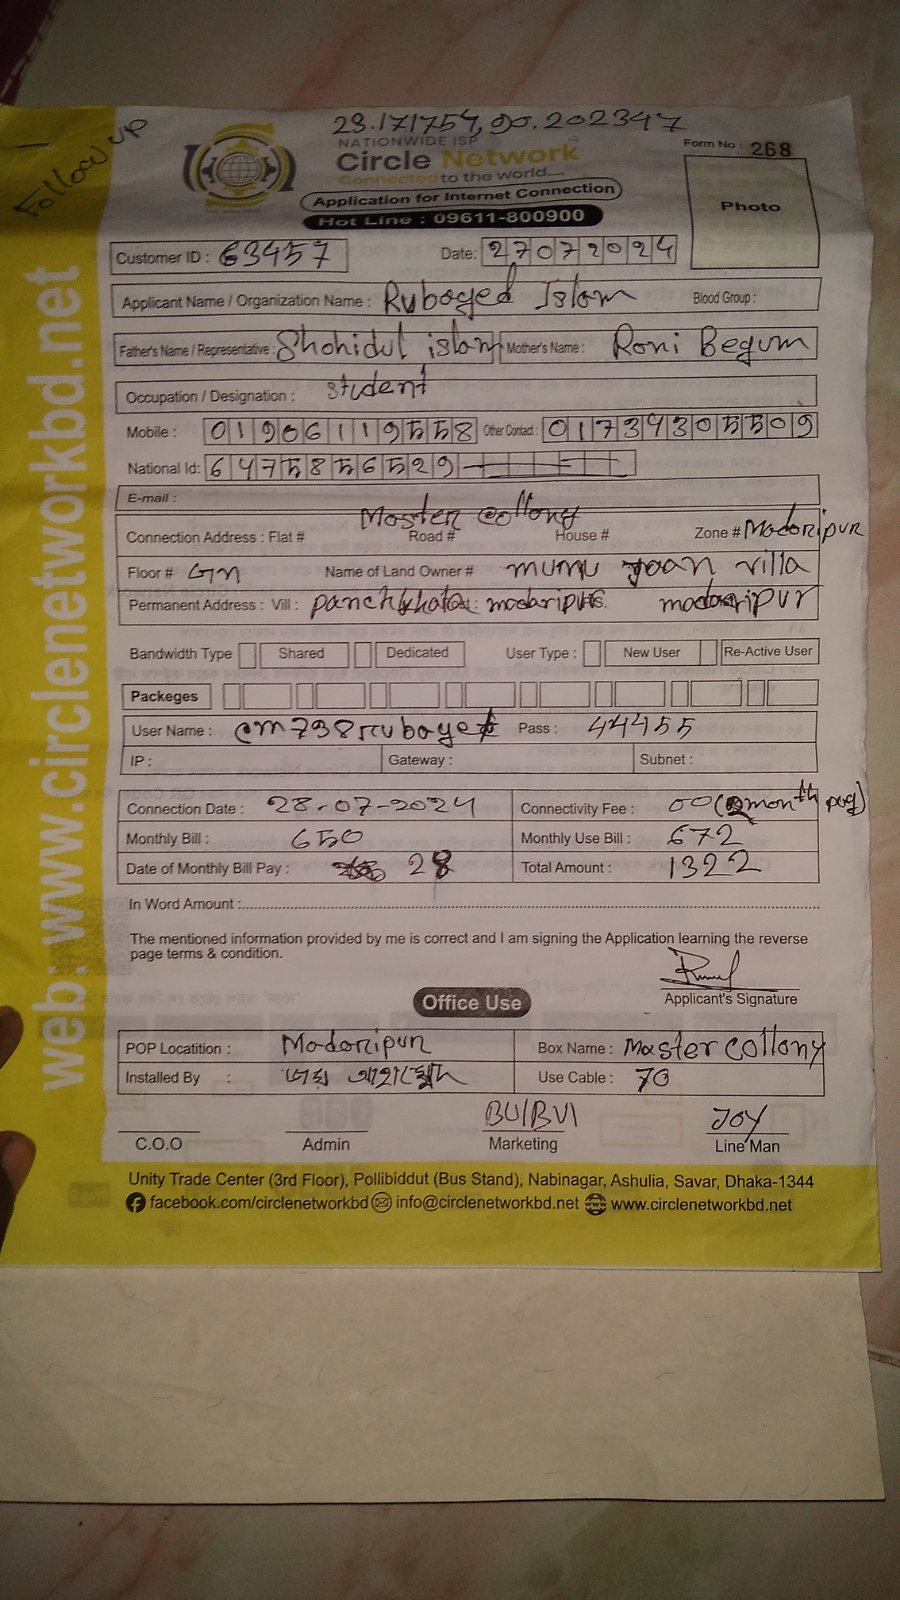 Follow up
23.171754, 90.202347
NATIONWIDE ISP
Circle Network
Connected to the world....
Form No : 268
Application for Internet Connection
Hot Line : 09611-800900
Photo
Customer ID : 63457 Date: 27072024
Applicant Name / Organization Name : Rubayed Islam Blood Group :
Father's Name / Representative : Shohidul islam Mother's Name : Roni Begum
Occupation / Designation : student
Mobile : 01906119558 Other Contact : 01739305509
National Id: 6475856529
E-mail :
Master Collony
Connection Address : Flat # Road # House # Zone # Madaripur
Floor # Gn Name of Land Owner # mumu villa
Permanent Address : Vill : madaripur madaripur
Bandwidth Type Shared Dedicated User Type : New User Re-Active User
Packeges
User Name : Pass : 44455
IP : Gateway : Subnet :
Connection Date : 28-07-2024 Connectivity Fee : 00 (2 month pag)
Monthly Bill : 650 Monthly Use Bill : 672
Date of Monthly Bill Pay : 28 Total Amount : 1322
In Word Amount :
The mentioned information provided by me is correct and I am signing the Application learning the reverse
page terms & condition.
Applicant's Signature
Office Use
POP Locatition : Madaripur Box Name : Master Collony
Installed By : Use Cable : 70
BU/BVI JOY
C.O.O Admin Marketing Line Man
Unity Trade Center (3rd Floor), Pollibiddut (Bus Stand), Nabinagar, Ashulia, Savar, Dhaka-1344
facebook.com/circlenetworkbd info@circlenetworkbd.net www.circlenetworkbd.net
web: www.circlenetworkbd.net